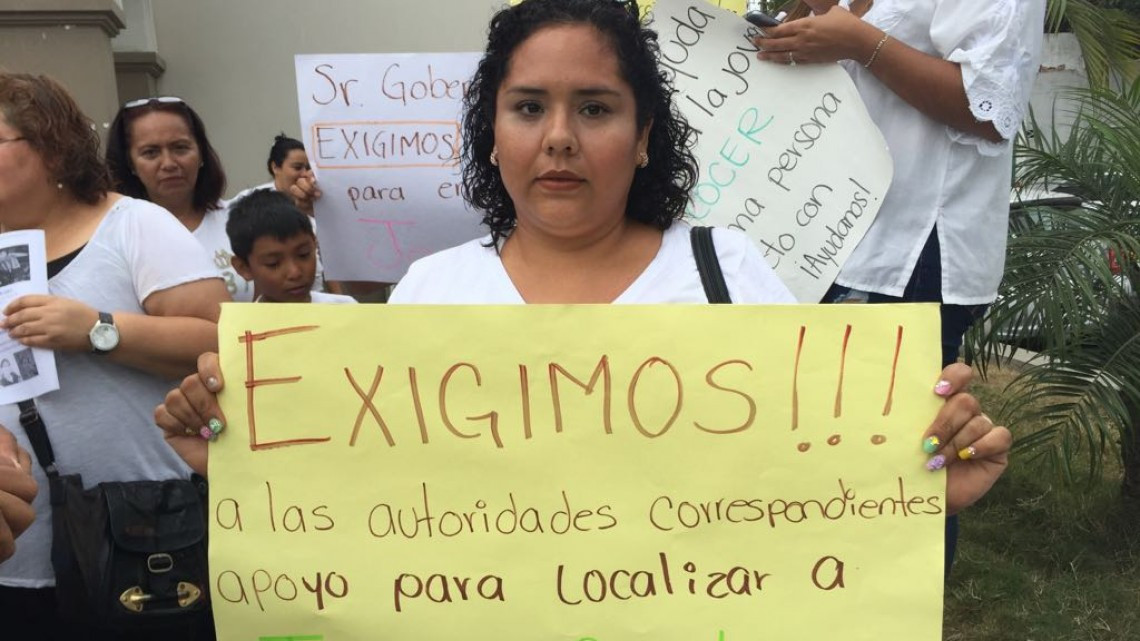 Sr. Gober
EXIGIMOS
para en
ayuda
a la Jove
OCER
persona
con
¡Ayudanos!
EXIGIMOS!!!
a las autoridades correspondientes
apoyo para localizar a